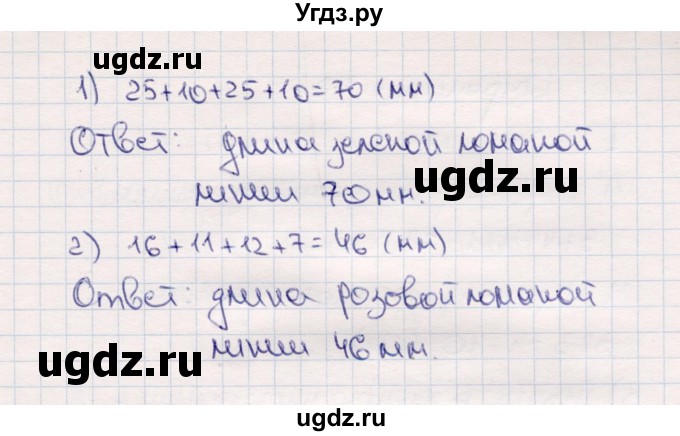 Угдз.ру
ugdz.ru
1) 25+10+25+10=70 (мм)
Ответ: длина зеленой ломаной
линии 70 мм.
ugdz.ru
2) 16+11+12+7=46 (мм)
Ответ: длина розовой ломаной
линии 46 мм.
ugdz.ru
ugdz.ru